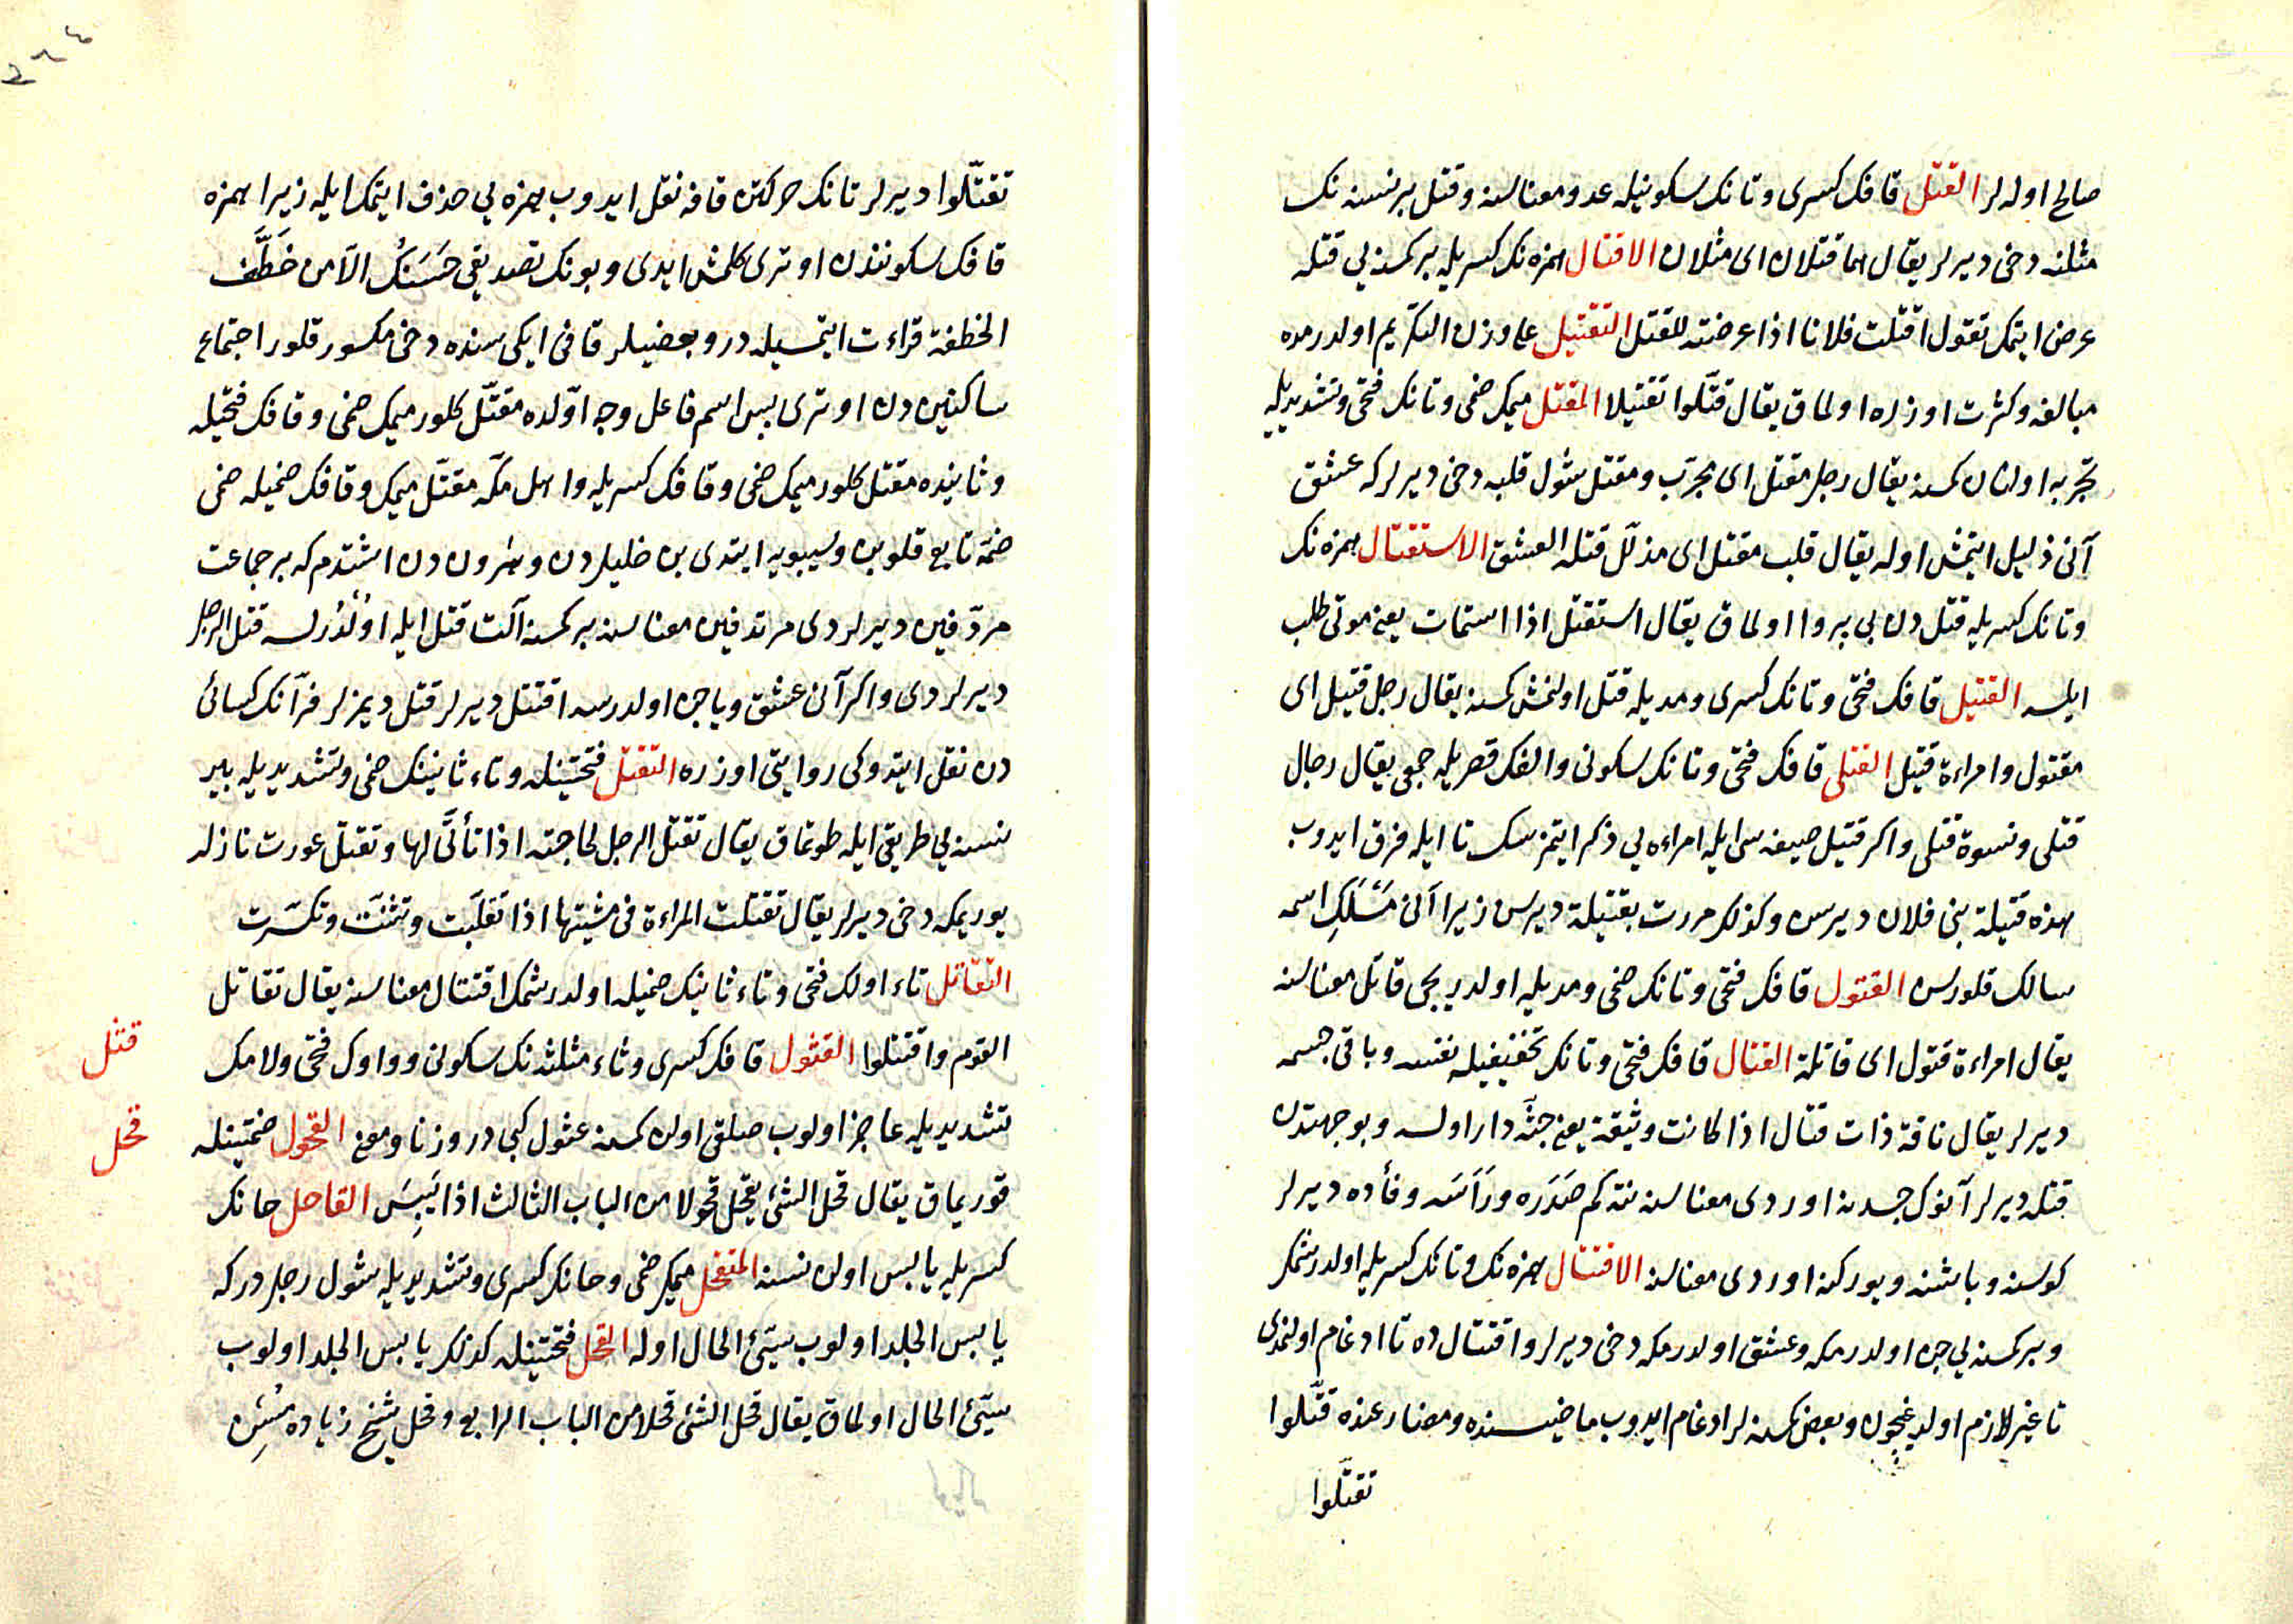 صالح اوله لر القتل قافك كسرى وتانك سكونيله عدو معناسنه وقتل بر نسنه نك
مثلنه دخى ديرلر يقال هما قتلان اى مثلان الاقتال همزه نك كسريله بر كمسنه يى قتله
عرض ايتمك تقول اقتلت فلانا اذا عرضته للقتل التقتيل على وزن التكريم اولدرمده
مبالغه وكثرت اوزره اولماق يقال قتّلوا تقتيلا المقتل ميمك ضمى وتانك فتحى وتشديديله
تجربه اولنان كمسنه يقال رجل مقتل اى مجرّب ومقتل شول قلبه دخى ديرلر كه عشق
آنى ذليل ايتمش اوله يقال قلب مقتل اى مذلّل قتله العشق الاستقتال همزه نك
وتانك كسريله قتل دن بى پروا اولماق يقال استقتل اذا استمات يعنى موتى طلب
ايلسه القتيل قافك فتحى وتانك كسرى ومديله قتل اولنمش كمسنه يقال رجل قتيل اى
مقتول وامراءة قتيل القتلى قافك فتحى وتانك سكونى والفك قصريله جمعى يقال رجال
قتلى ونسوة قتلى واكر قتيل صيغه سى ايله امراءه يى ذكر ايتمزسك تا ايله فرق ايدوب
هذه قتيلة بنى فلان ديرسن وكذلك مررت بقتيلة ديرسن زيرا آنى مَسْلَكِ اسمه
سالك قلورسن القتول قافك فتحى وتانك ضمى ومديله اولديريجى قاتل معناسنه
يقال امراءة قتول اى قاتلة القتال قافك فتحى وتانك تخفيفيله نفسه وباقى جسمه
ديرلر يقال ناقة ذات قتال اذا كانت وثيقة يعنى جثّه دار اولسه وبو جهتدن
قتله ديرلر آنوك جسدنه اوردى معناسنه نته كم صَدَره ورَأسَه وفأده ديرلر
كوكسنه وباشنه ويوركنه اوردى معناسنه الاقتتال همزه نك وتانك كسريله اولدرشمك
وبر كمسنه يى جن اولدرمكه وعشق اولدرمكه دخى ديرلر واقتتال ده تا ادغام اولنمدى
تا غير لازم اولديغيچون وبعض كمسنه لر ادغام ايدوب ماضيسنده ومضارعنده قتّلوا
تقتّلوا
تقتّلوا ديرلر تانك حركتن قافه نقل ايدوب همزه يى حذف ايتمك ايله زيرا همزه
قافك سكونندن اوترى كلمش ايدى وبونك تصديقى حَسَنك الاّ من خَطَّف
الخطفة قراءت ايتمسيله در وبعضيلر قافى ايكيسنده دخى مكسور قلور اجتماع
ساكنين دن اوترى پس اسم فاعل وجه اوّلده مقتّل كلور ميمك ضمى وقافك فتحيله
وثانيده مقتل كلور ميمك ضمى وقافك كسريله واهل مكّه مقتّل ميمك وقافك ضميله ضمى
ضمّه تابع قلوبن وسيبويه ايتدى بن خليلدن وهرون دن اشتدم كه بر جماعت
مردّفين ديرلردى مرتدفين معناسنه بر كمسنه آلت قتل ايله اولدرلسه قتل الرجل
ديرلردى واكر آنى عشق ويا جن اولدرسه اقتتل ديرلر قتل ديمزلر فرّآنك كسائى
دن نقل ايتدوكى روايتى اوزره التقتل فتحتينله وتاء ثانينك ضمى وتشديديله بر
نسنه يى طريقى ايله طوتماق يقال تقتل الرجل لحاجته اذا تأتّى لها وتقتل عورت نازله
يوريمكه دخى ديرلر يقال تقتلت المراءة فى مشيتها اذا تقلّبت وتثنّت وتكسّرت
التقاتل تاء اولك فتحى وتاء ثانينك ضميله اولدرشمك اقتتال معناسنه يقال تقاتل
القوم واقتتلوا القثول قافك كسرى وثاء مثلثه نك سكونى وواوك فتحى ولامك
تشديديله عاجز اولوب صلق اولن كمسنه عثول كبى در وزنا ومعنى القحول ضمتينله
قوريماق يقال قحل الشئ يقحل قحولا من الباب الثالث اذا يَبِسَ القاحل حانك
كسريله يابس اولن نسنه المتقحل ميمك ضمى وحانك كسرى وتشديديله شول رجلدر كه
يابس الجلد اولوب سيّئ الحال اوله القحل فتحتينله كذلك يابس الجلد اولوب
سيّئ الحال اولماق يقال قحل الشئ قحلا من الباب الرابع وقحل شيخ زياده مُسِن
قثل
قحل